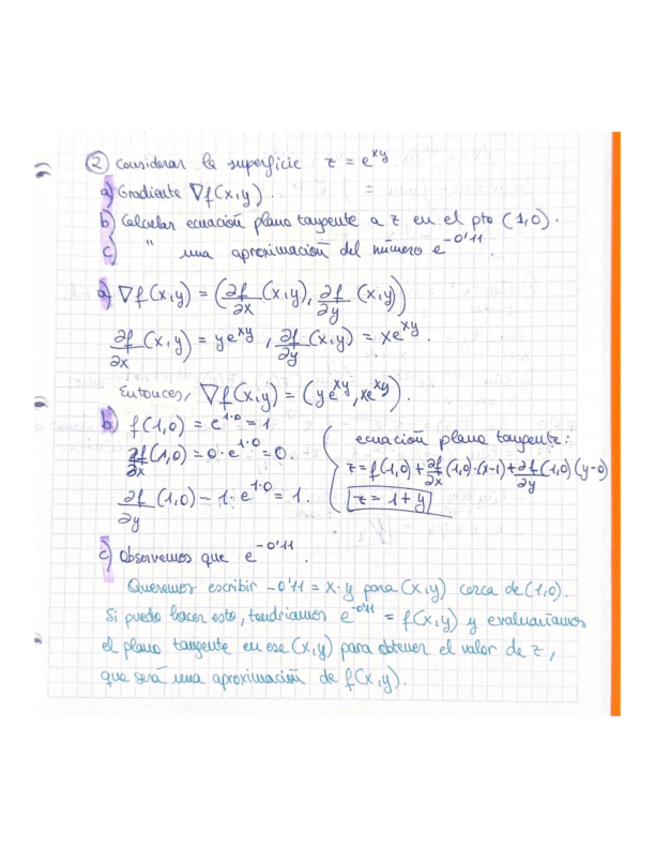 ② Considerar la superficie z = e^xy.
a) Gradiente ∇f(x,y).
b) Calcular ecuación plano tangente a z en el pto (1,0).
c) " una aproximación del número e^-0'11.
a) ∇f(x,y) = (∂f/∂x (x,y), ∂f/∂y (x,y))
∂f/∂x (x,y) = ye^xy, ∂f/∂y (x,y) = xe^xy.
Entonces, ∇f(x,y) = (ye^xy, xe^xy).
b) f(1,0) = e^1·0 = 1
∂f/∂x (1,0) = 0·e^1·0 = 0.
∂f/∂y (1,0) - 1·e^1·0 = 1.
ecuación plano tangente:
z = f(1,0) + ∂f/∂x (1,0)·(x-1) + ∂f/∂y (1,0)(y-0)
z = 1 + y
c) Observemos que e^-0'11.
Queremos escribir -0'11 = x·y para (x,y) cerca de (1,0).
Si puedo hacer esto, tendríamos e^-0'11 = f(x,y) y evaluaríamos
el plano tangente en ese (x,y) para obtener el valor de z,
que será una aproximación de f(x,y).